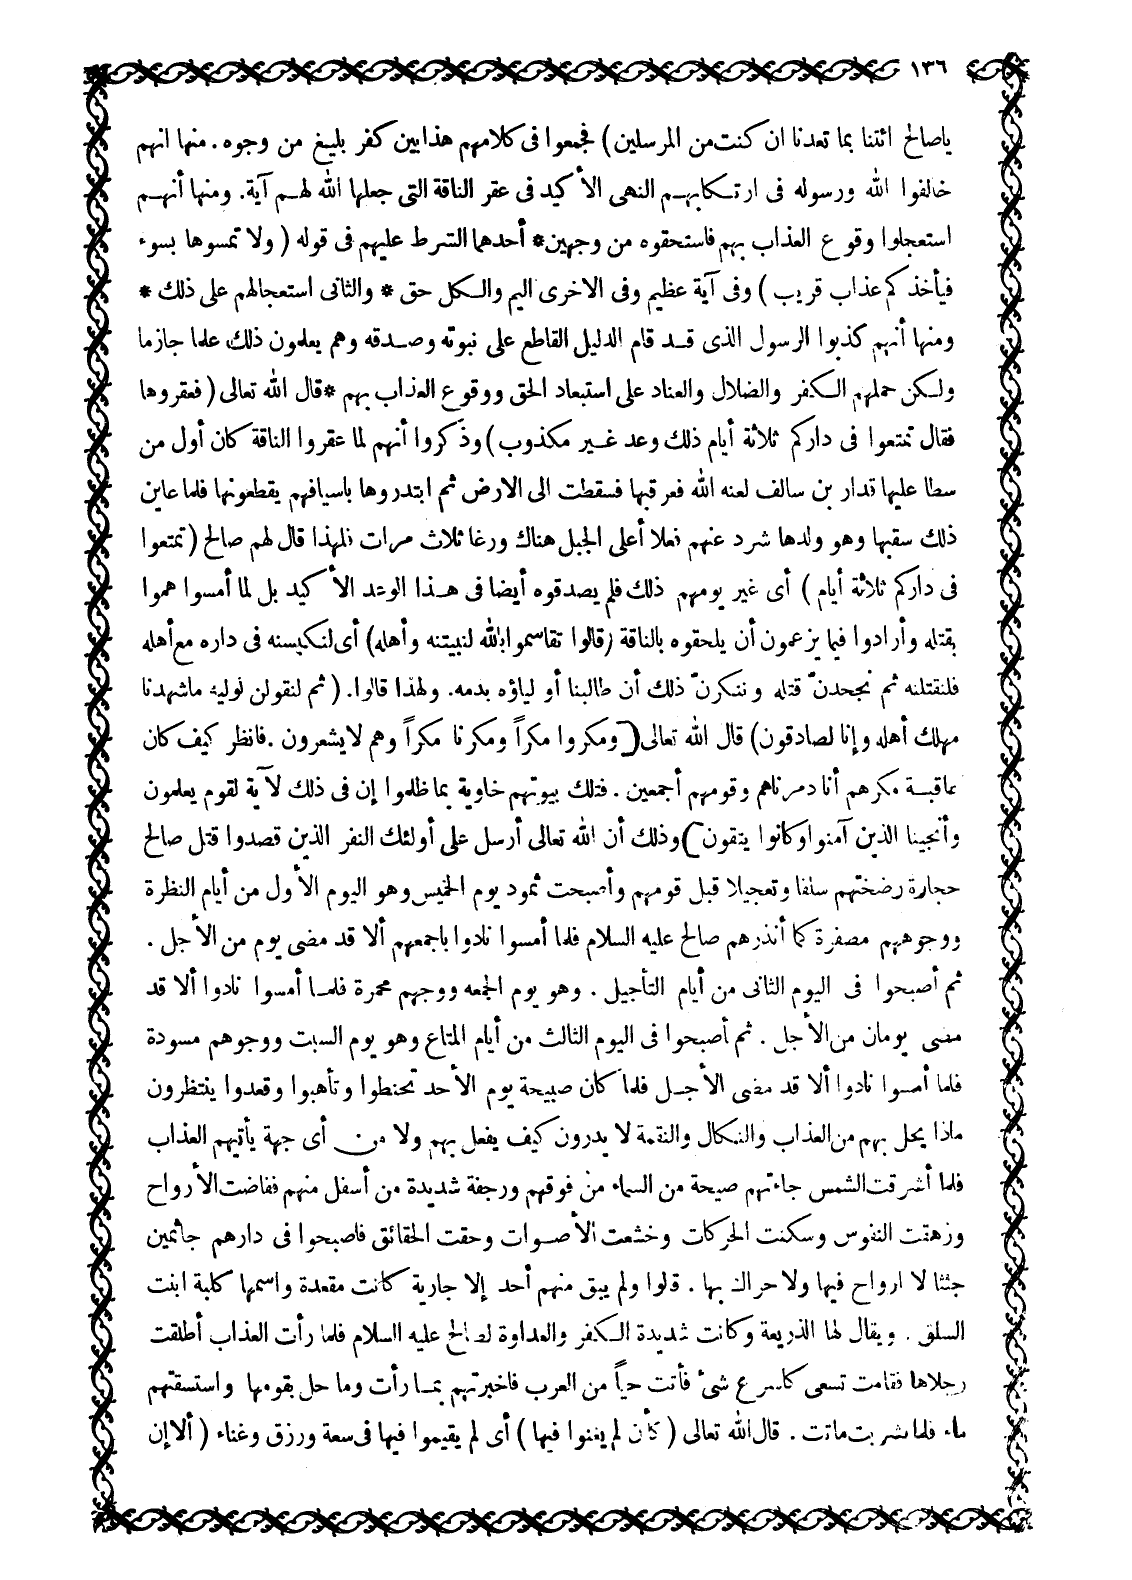 ١٣٦
ياصالح ائتنا بما تعدنا ان كنت من المرسلين ) فجمعوا فى كلامهم هذا بين كفر بليغ من وجوه . منها انهم
خالفوا الله ورسوله فى ارتكابهم النهى الأكيد فى عقر الناقة التى جعلها الله لهم آية . ومنها أنهم
استعجلوا وقوع العذاب بهم فاستحقوه من وجهين * أحدهما الشرط عليهم فى قوله ( ولا تمسوها بسوء
فيأخذكم عذاب قريب ) وفى آية عظيم وفى الاخرى اليم والكل حق * والثانى استعجالهم على ذلك *
ومنها أنهم كذبوا الرسول الذى قد قام الدليل القاطع على نبوته وصدقه وهم يعلمون ذلك علما جازما
ولكن حملهم الكفر والضلال والعناد على استبعاد الحق ووقوع العذاب بهم * قال الله تعالى ( فعقروها
فقال تمتعوا فى داركم ثلاثة أيام ذلك وعد غير مكذوب ) وذكروا أنهم لما عقروا الناقة كان أول من
سطا عليها قدار بن سالف لعنه الله فعرقبها فسقطت الى الارض ثم ابتدروها باسيافهم يقطعونها فلما عاين
ذلك سقبها وهو ولدها شرد عنهم فعلا أعلى الجبل هناك ورغا ثلاث مرات فلهذا قال لهم صالح ( تمتعوا
فى داركم ثلاثة أيام ) أى غير يومهم ذلك فلم يصدقوه أيضا فى هذا الوعد الأكيد بل لما أمسوا هموا
بقتله وأرادوا فيما يزعمون أن يلحقوه بالناقة ( قالوا تقاسموا بالله لنبيتنه وأهله ) أى لنكبسنه فى داره مع أهله
فلنقتلنه ثم نجحدنّ قتله وننكرنّ ذلك أن طالبنا أولياؤه بدمه . ولهذا قالوا . ( ثم لنقولن لوليه ماشهدنا
مهلك أهله وإنا لصادقون ) قال الله تعالى ( ومكروا مكراً ومكرنا مكراً وهم لا يشعرون . فانظر كيف كان
عاقبة مكرهم أنا دمرناهم وقومهم أجمعين . فتلك بيوتهم خاوية بما ظلموا إن فى ذلك لآية لقوم يعلمون
وأنجينا الذين آمنوا وكانوا يتقون ) وذلك أن الله تعالى أرسل على أولئك النفر الذين قصدوا قتل صالح
حجارة رضختهم سلفا وتعجيلا قبل قومهم وأصبحت ثمود يوم الخميس وهو اليوم الأول من أيام النظرة
ووجوههم مصفرة كما أنذرهم صالح عليه السلام فلما أمسوا نادوا باجمعهم ألا قد مضى يوم من الأجل .
ثم أصبحوا فى اليوم الثانى من أيام التأجيل . وهو يوم الجمعه ووجهم محمرة فلما أمسوا نادوا ألا قد
مضى يومان من الأجل . ثم أصبحوا فى اليوم الثالث من أيام المتاع وهو يوم السبت ووجوهم مسودة
فلما أمسوا نادوا ألا قد مضى الأجل فلما كان صبيحة يوم الأحد تحنطوا وتأهبوا وقعدوا ينتظرون
ماذا يحل بهم من العذاب والنكال والنقمة لا يدرون كيف يفعل بهم ولا من أى جهة يأتيهم العذاب
فلما أشرقت الشمس جاءتهم صيحة من السماء من فوقهم ورجفة شديدة من أسفل منهم ففاضت الأرواح
وزهقت النفوس وسكنت الحركات وخشعت الأصوات وحقت الحقائق فاصبحوا فى دارهم جاثمين
جثثا لا ارواح فيها ولا حراك بها . قالوا ولم يبق منهم أحد إلا جارية كانت مقعدة واسمها كلبة ابنت
السلق . ويقال لها الذريعة وكانت شديدة الكفر والعداوة لصالح عليه السلام فلما رأت العذاب أطلقت
رجلاها فقامت تسعى كاسرع شئ فأتت حياً من العرب فاخبرتهم بما رأت وما حل بقومها واستسقتهم
ماء فلما شربت ماتت . قال الله تعالى ( كأن لم يغنوا فيها ) أى لم يقيموا فيها فى سعة ورزق وغناء ( ألا إن